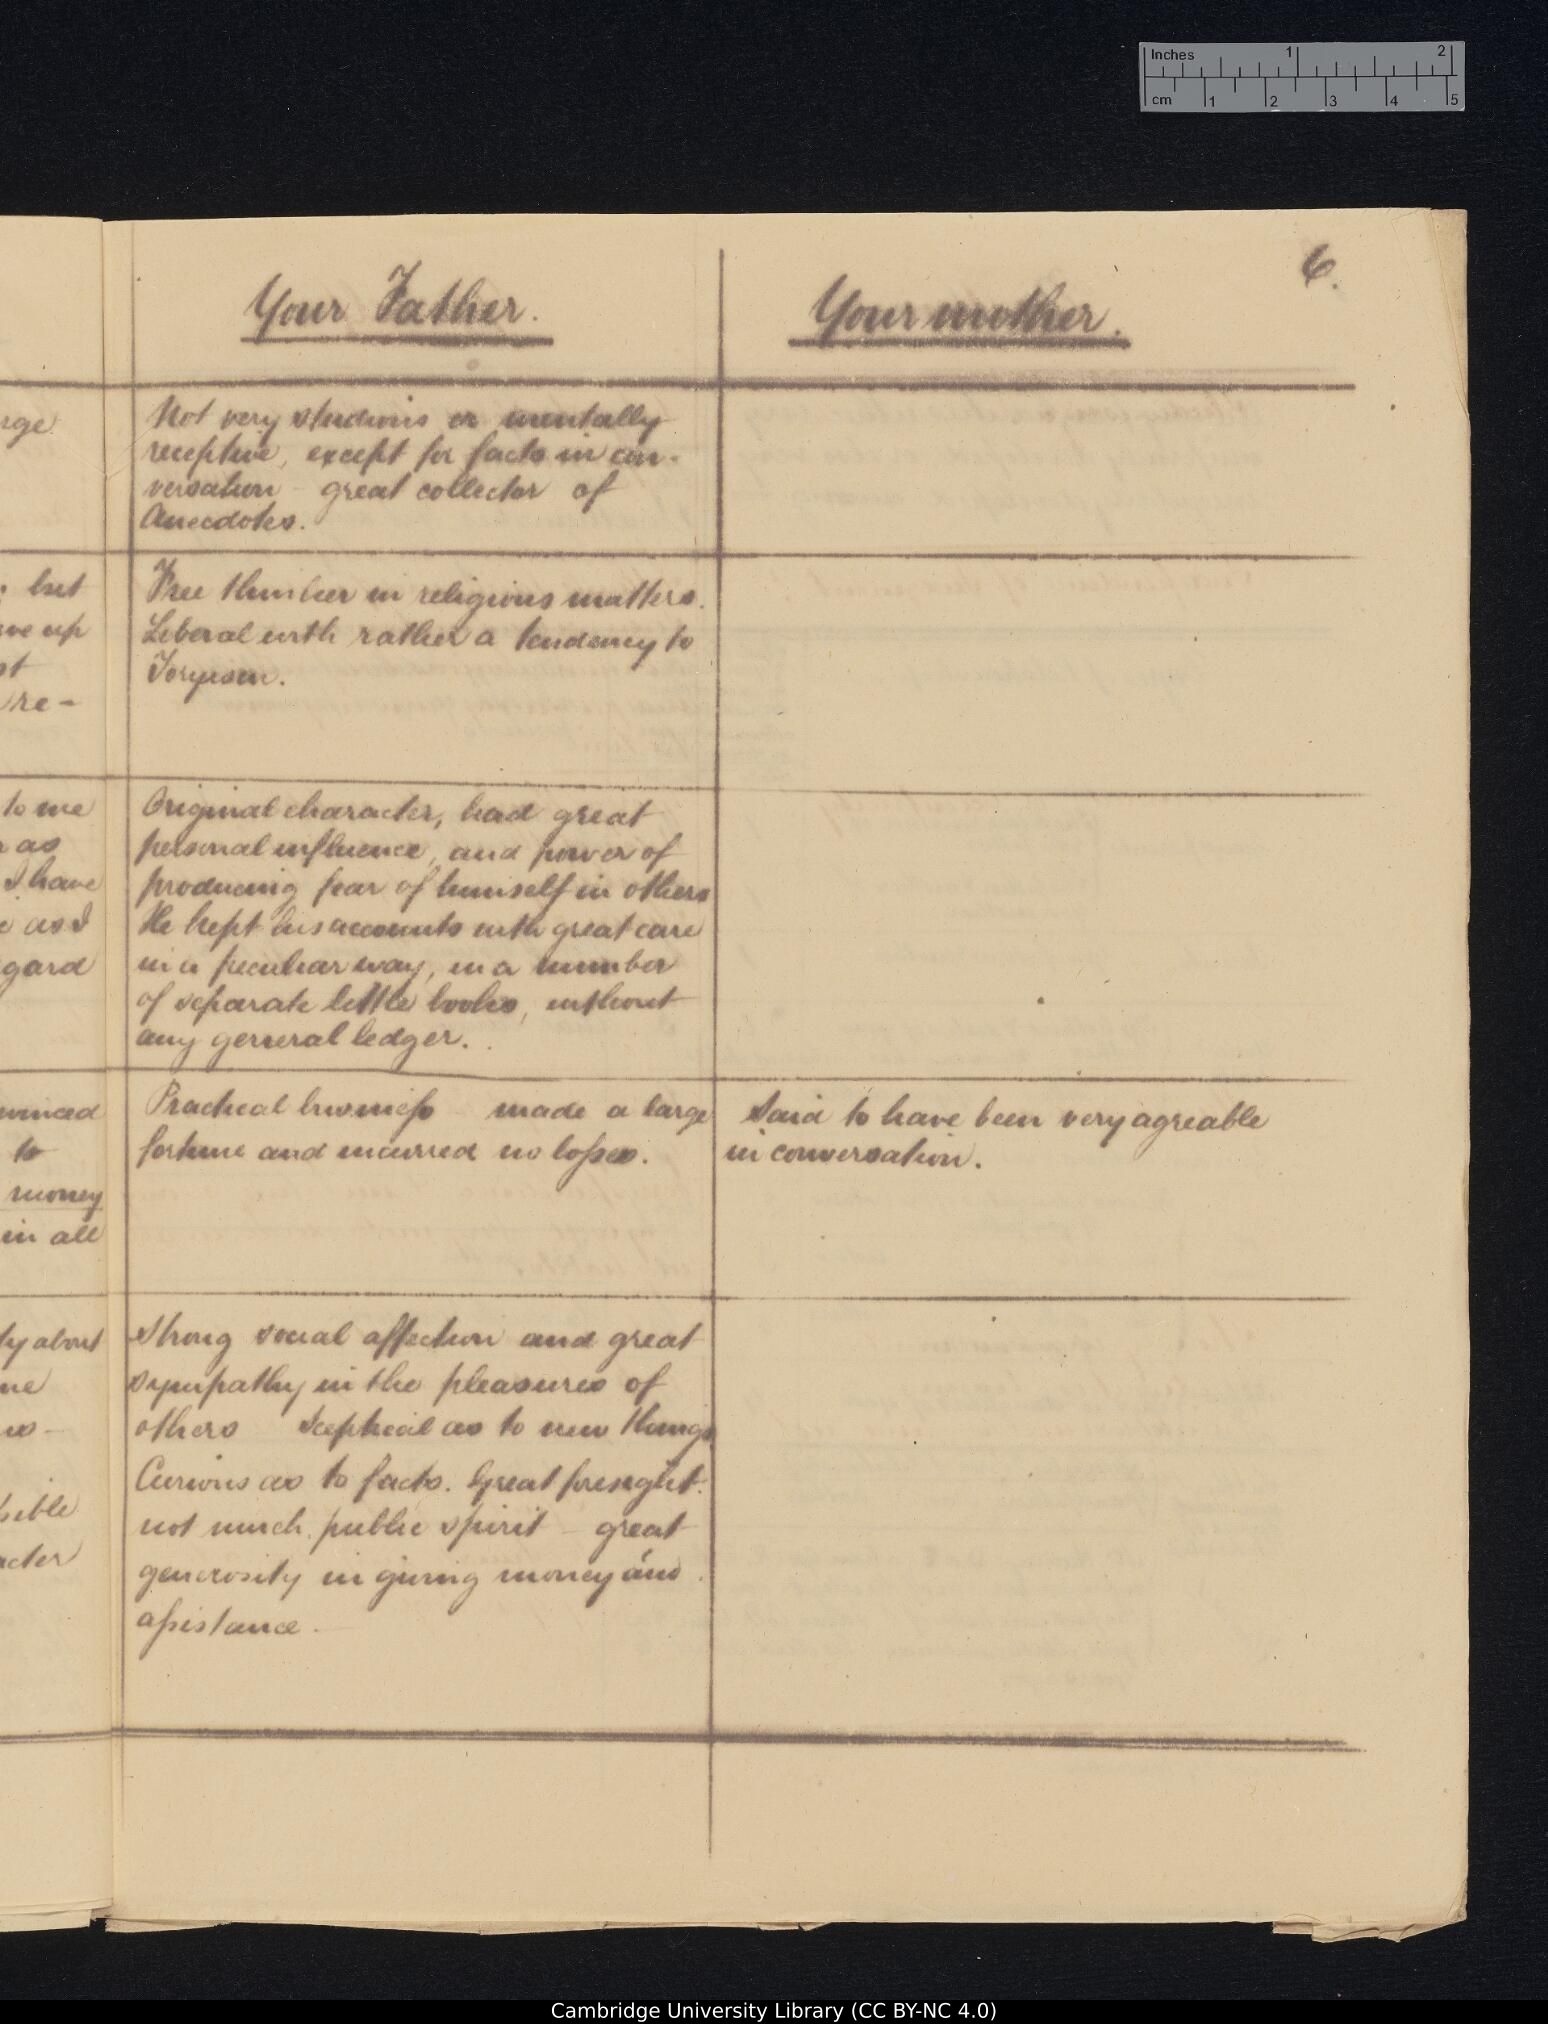 Inches 1 2
cm 1 2 3 4 5
6.
Your Father.
Your mother.
rge
Not very studious or mentally
receptive, except for facts in con-
versation - great collector of
Anecdotes.
but
ve up
st
re-
Free thinker in religious matters.
Liberal with rather a tendency to
Toryism.
to me
as
I have
as I
gard
Original character, had great
personal influence, and power of
producing fear of himself in others
He kept his accounts with great care
in a peculiar way, in a number
of separate little books, without
any general ledger.
vinced
to
money
in all
Practical business made a large
fortune and incurred no losses.
Said to have been very agreable
in conversation.
ly about
me
sible
acter
Strong social affection and great
sympathy in the pleasures of
others Sceptical as to new things
Curious as to facts. Great foresight.
not much public spirit - great
generosity in giving money and
assistance.
Cambridge University Library (CC BY-NC 4.0)